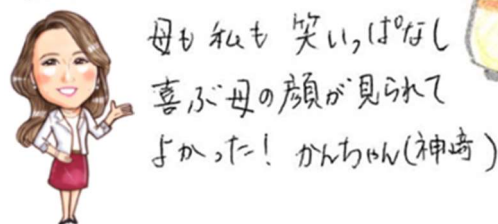 母も私も 笑いっぱなし
喜ぶ母の顔が見られて
よかった! かんちゃん(神崎)